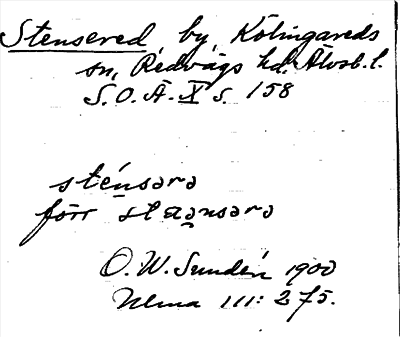 Stensered by, Kölingareds
sn, Redvägs hd. Älvsb. l.
S. O. Ä. X s. 158
sténsərə
förr stæənsərə
O. W. Sundén 1900
Ulma 111: 275.